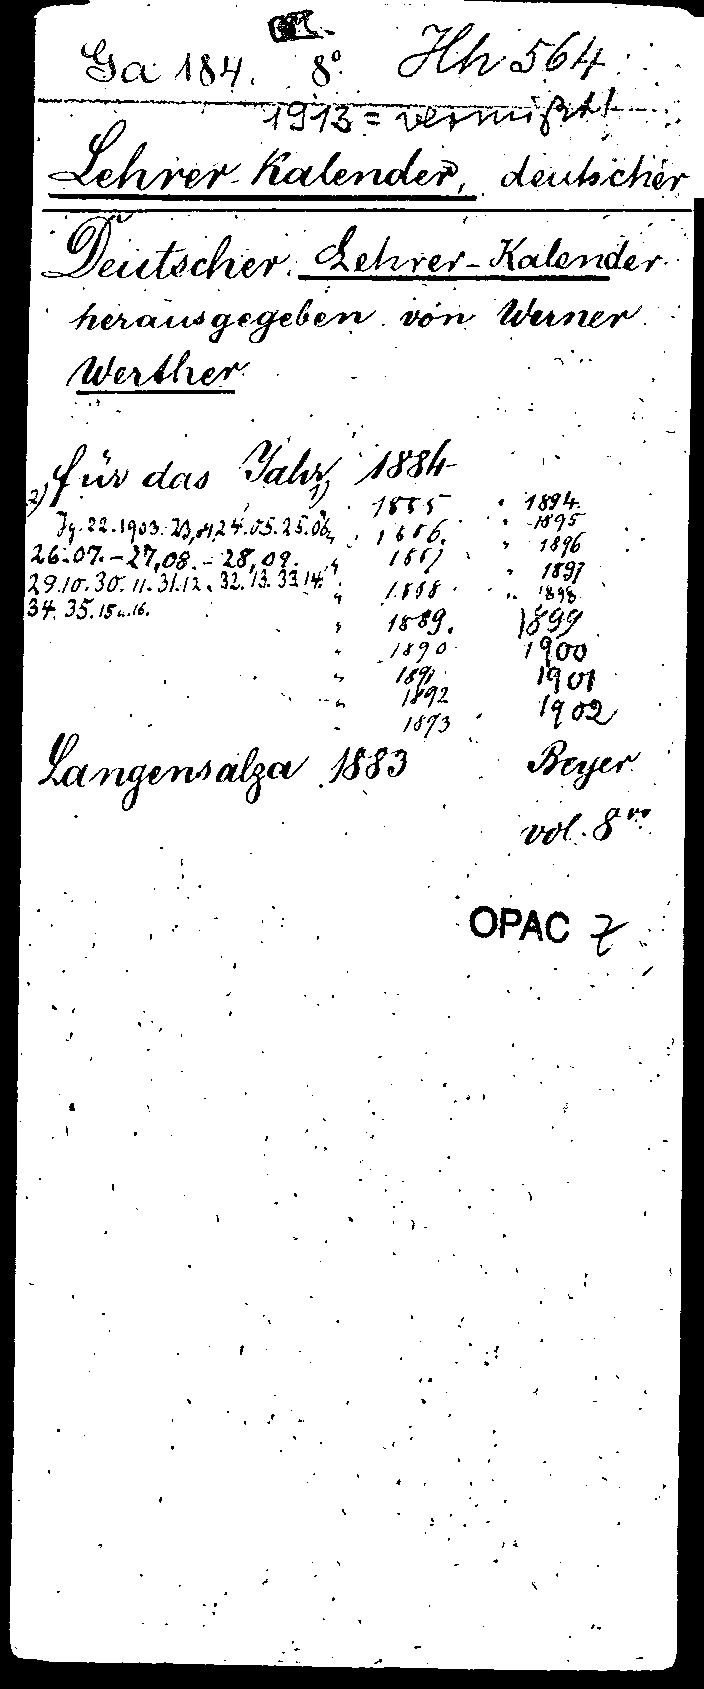 Ga 184. 8° Hh 564
1913 = vermißt!
Lehrer-Kalender, deutscher
Deutscher Lehrer-Kalender
herausgegeben von Werner
Werther
für das Jahr 1) 1884
2) Jg. 22. 1903. 23, 04, 24. 05. 25. 06, " 1885 " 1894.
26. 07. - 27, 08. - 28, 09. " 1886. " 1895
29. 10. 30. 11. 31. 12. 32. 13. 33 14. " 1887 " 1896
34. 35. 15 u. 16. " 1888 " 1897
" 1889. " 1898
" 1890 1899
" 1891 1900
" 1892 1901
" 1893 1902
Langensalza 1883 Beyer
vol. 8vo
OPAC z